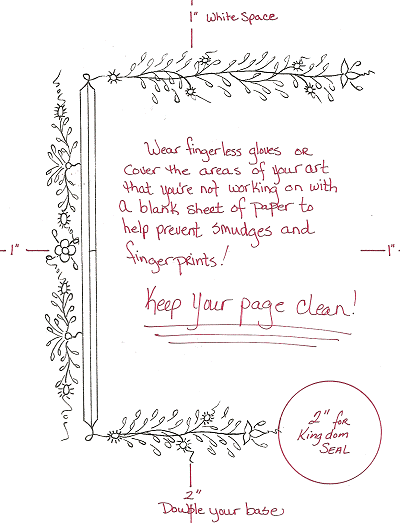 1" White Space
Wear fingerless gloves or
cover the areas of your art
that you're not working on with
a blank sheet of paper to
help prevent smudges and
fingerprints!
1"
1"
Keep Your page clean!
2" for
Kingdom
Seal
2"
Double your base